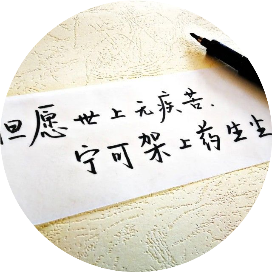 但愿世上无疾苦.
宁可架上药生尘